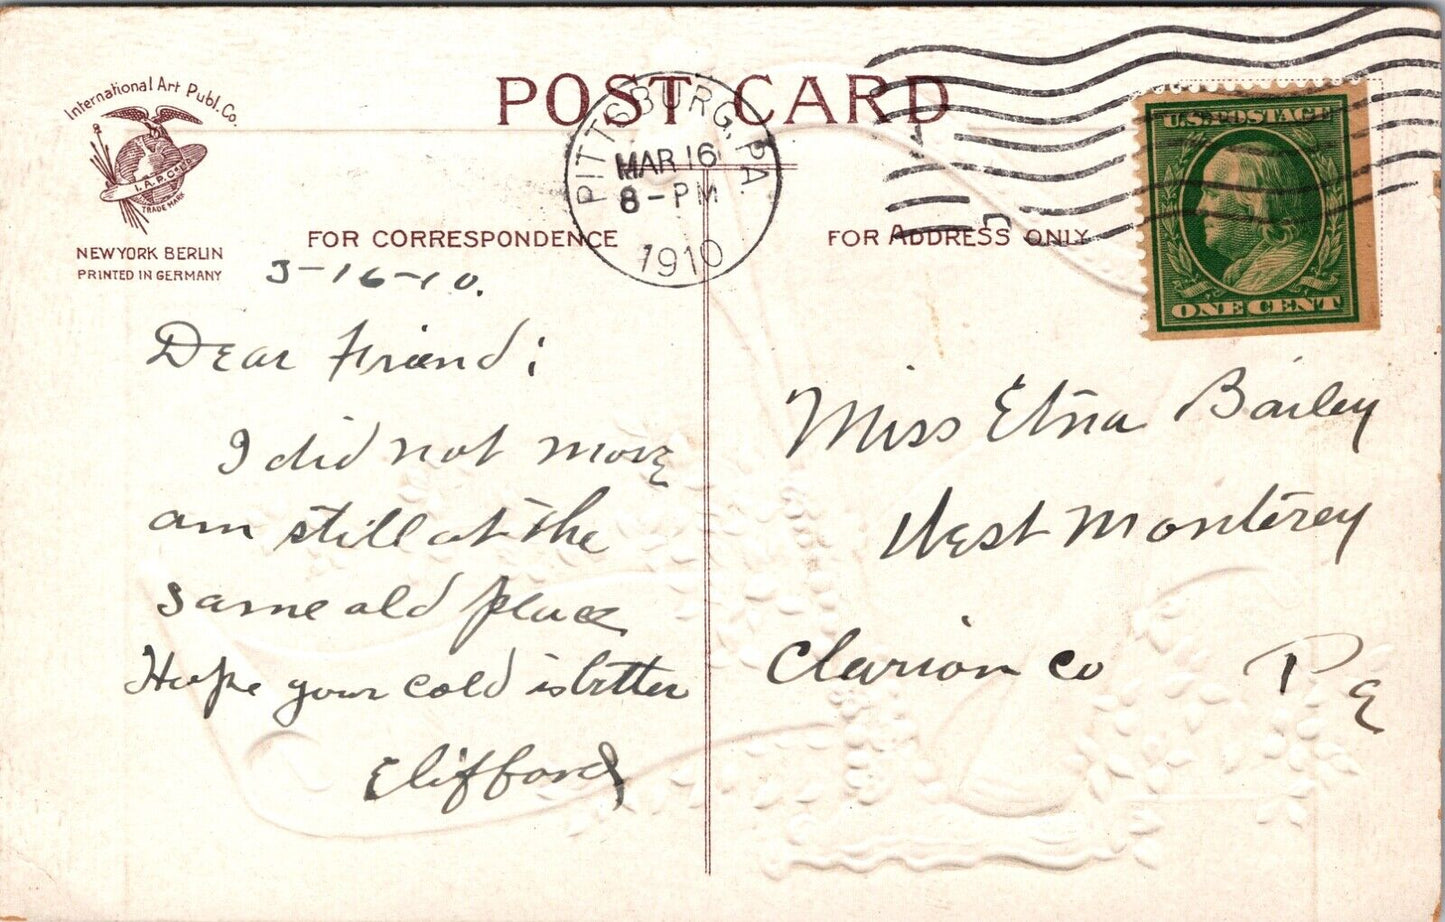 International Art Publ. Co.
I.A.P.Co.
TRADE MARK
NEW YORK BERLIN
PRINTED IN GERMANY
POST CARD
PITTSBURG, PA.
MAR 16
8-PM
1910
U.S. POSTAGE
ONE CENT
FOR CORRESPONDENCE
FOR ADDRESS ONLY
3-16-10.
Dear Friend:
I did not move
am still at the
same old place
Hope your cold is better
Clifford
Miss Etna Bailey
West Monterey
Clarion Co Pa